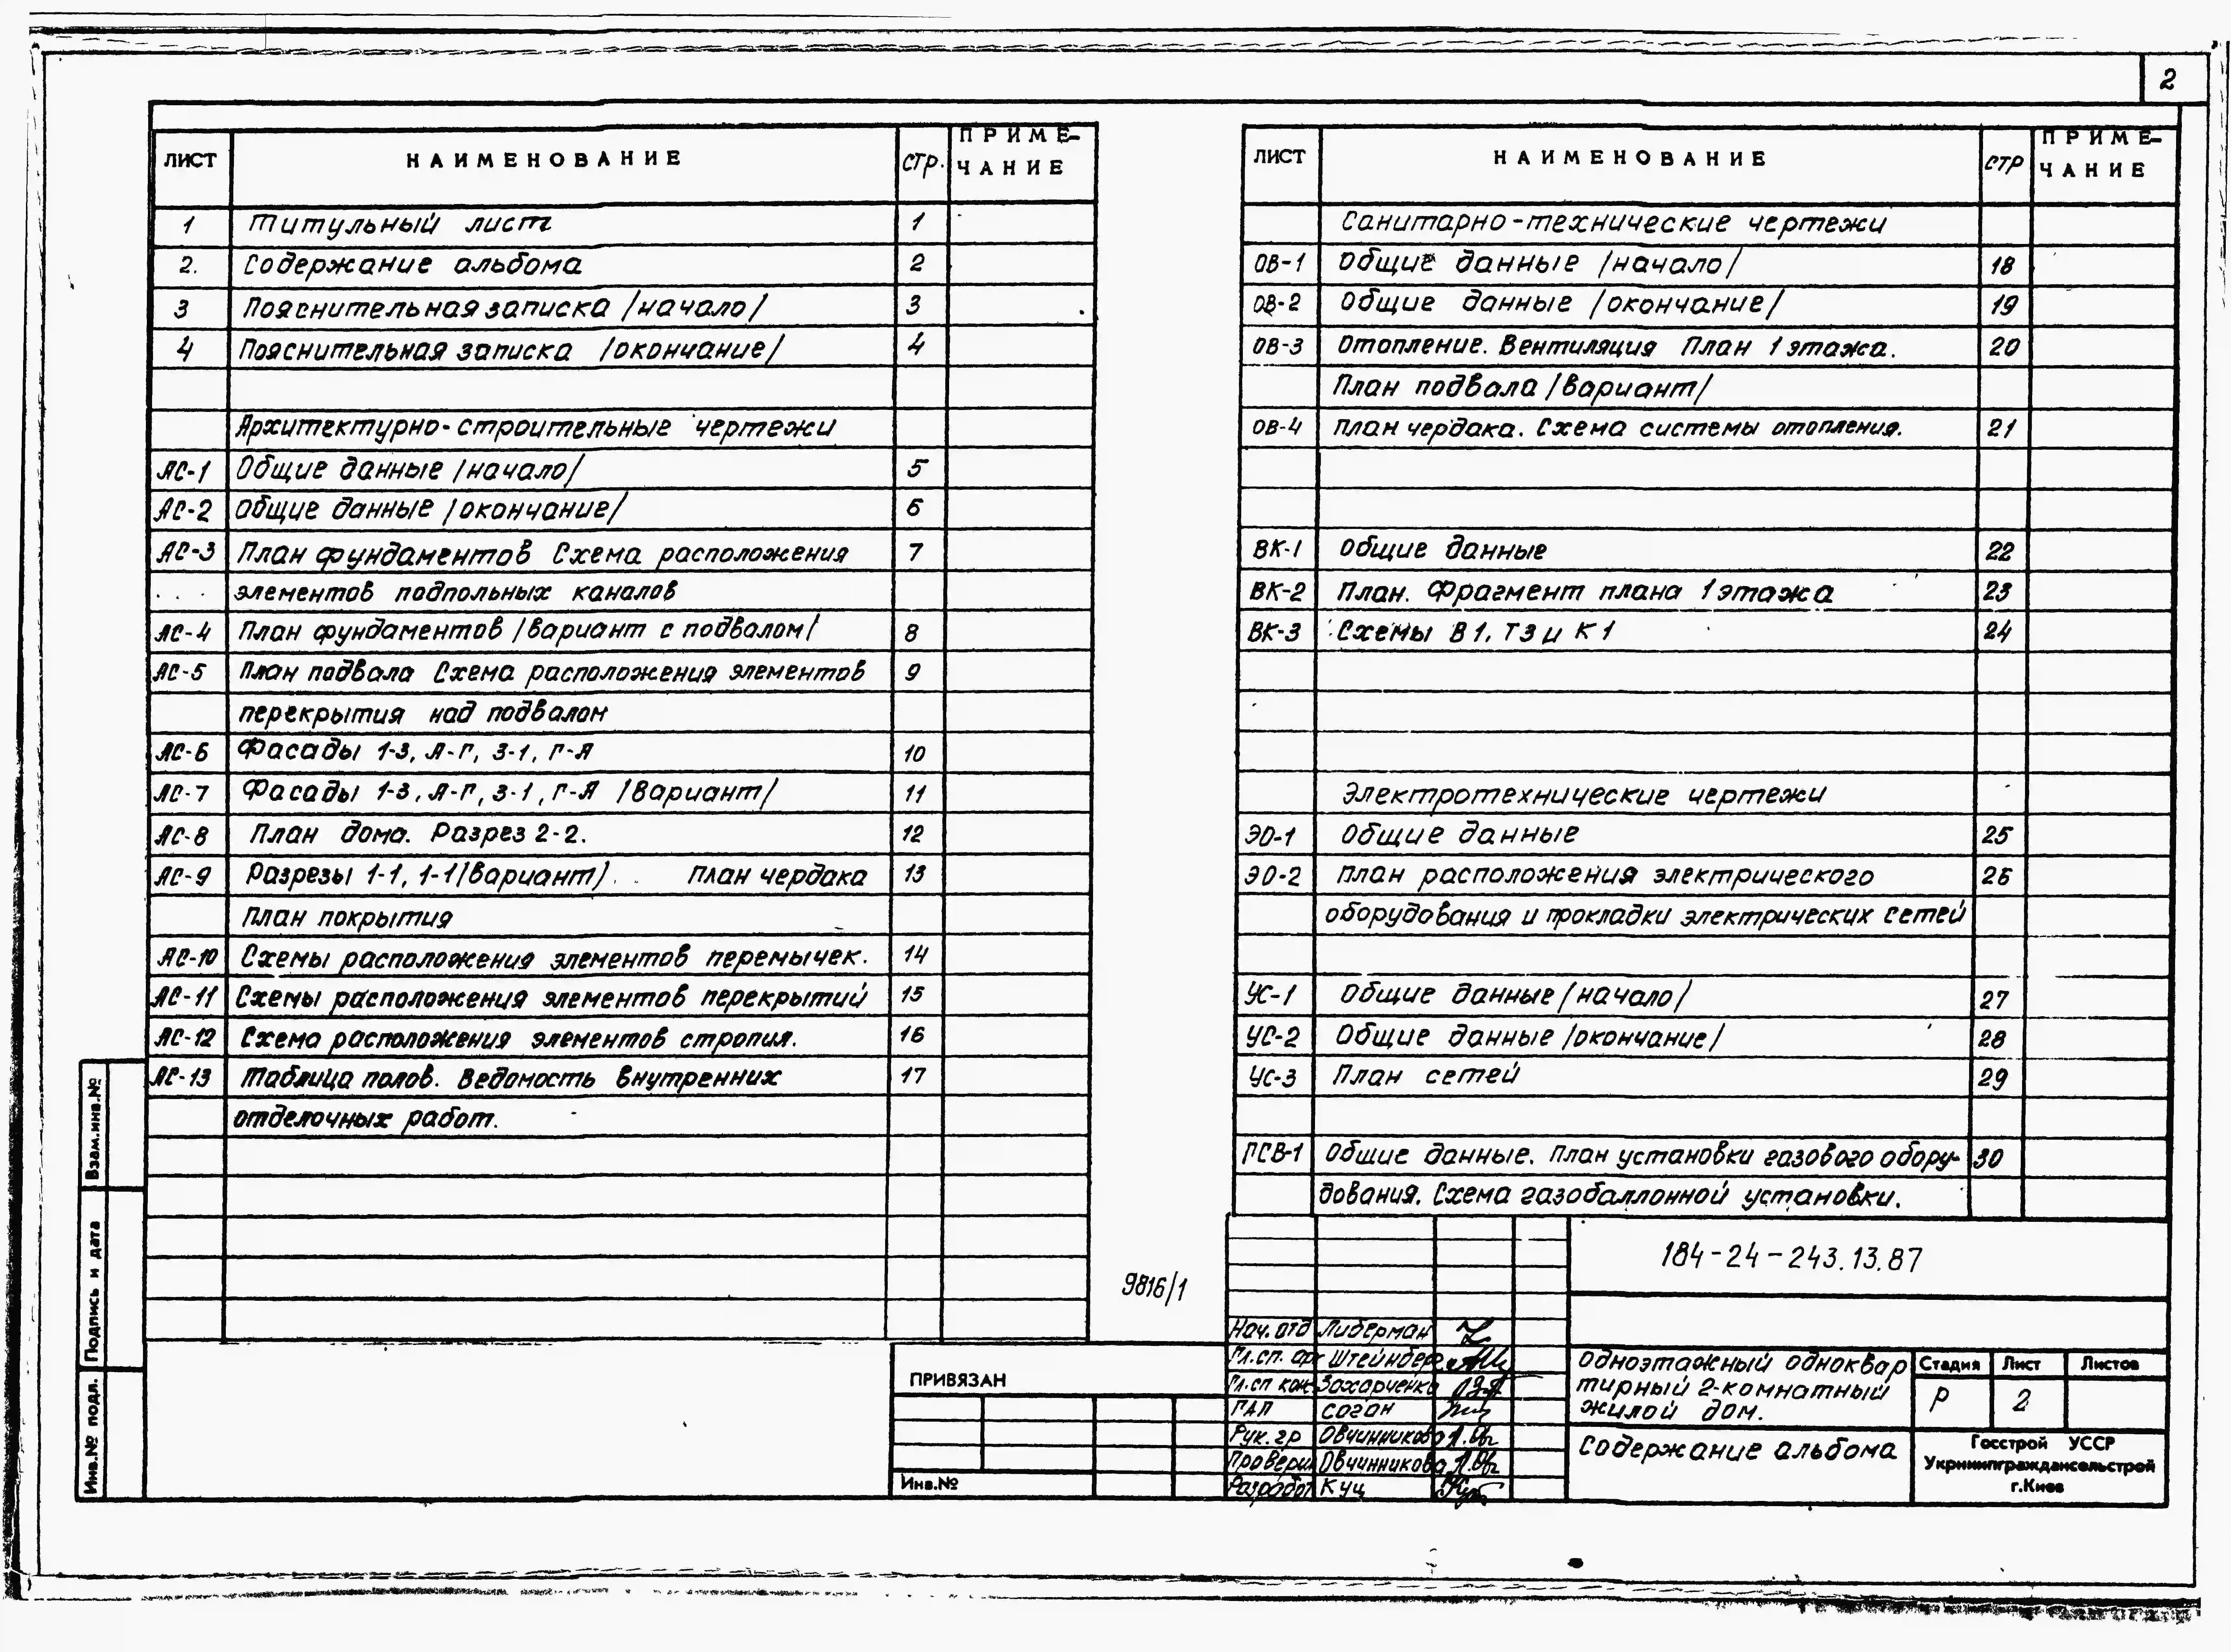 2
ЛИСТ НАИМЕНОВАНИЕ СТР. ПРИМЕ-
ЧАНИЕ
1 Титульный лист 1
2. Содержание альбома 2
3 Пояснительная записка /начало/ 3
4 Пояснительная записка /окончание/ 4
Архитектурно-строительные чертежи
АС-1 Общие данные /начало/ 5
АС-2 Общие данные /окончание/ 6
АС-3 План фундаментов Схема расположения 7
элементов подпольных каналов
АС-4 План фундаментов /вариант с подвалом/ 8
АС-5 План подвала Схема расположения элементов 9
перекрытия над подвалом
АС-6 Фасады 1-3, А-Г, 3-1, Г-А 10
АС-7 Фасады 1-3, А-Г, 3-1, Г-А /вариант/ 11
АС-8 План дома. Разрез 2-2. 12
АС-9 Разрезы 1-1, 1-1/вариант/. План чердака 13
План покрытия
АС-10 Схемы расположения элементов перемычек. 14
АС-11 Схемы расположения элементов перекрытий 15
АС-12 Схема расположения элементов стропил. 16
АС-13 Таблица полов. Ведомость внутренних 17
отделочных работ.
ЛИСТ НАИМЕНОВАНИЕ СТР ПРИМЕ-
ЧАНИЕ
Санитарно-технические чертежи
ОВ-1 Общие данные /начало/ 18
ОВ-2 Общие данные /окончание/ 19
ОВ-3 Отопление. Вентиляция План 1 этажа. 20
План подвала /вариант/
ОВ-4 План чердака. Схема системы отопления. 21
ВК-1 Общие данные 22
ВК-2 План. Фрагмент плана 1 этажа 23
ВК-3 Схемы В1, Т3 и К1 24
Электротехнические чертежи
ЭО-1 Общие данные 25
ЭО-2 План расположения электрического 26
оборудования и прокладки электрических сетей
УС-1 Общие данные /начало/ 27
УС-2 Общие данные /окончание/ 28
УС-3 План сетей 29
ГСВ-1 Общие данные. План установки газового обору- 30
дования. Схема газобаллонной установки.
9816/1
184-24-243.13.87
Нач. отд Либерман
Гл. сп. арх Штейнберг
Гл. сп кон Захарченко
ГАП Соган
Рук. гр Овчинникова
Проверил Овчинникова
Разработ Куц
Одноэтажный одноквар
тирный 2-комнатный
жилой дом.
Стадия Лист Листов
Р 2
Содержание альбома
Госстрой УССР
Укрниипграждансельстрой
г.Киев
ПРИВЯЗАН
Инв.№
Взам.инв.№
Подпись и дата
Инв.№ подл.